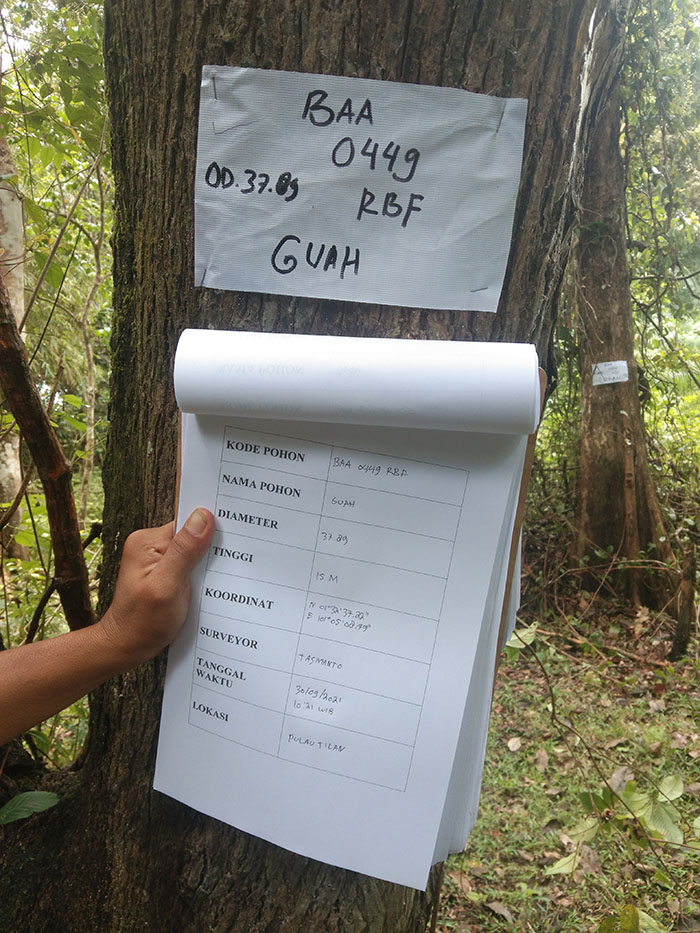 BAA
0449
OD.37.89
RBF
GUAH
KODE POHON BAA 0449 RBF
NAMA POHON GUAH
DIAMETER 37.89
TINGGI 15 M
KOORDINAT N 01°32'37.22"
E 101°05'08.49"
SURVEYOR TASWANTO
TANGGAL 30/09/2021
WAKTU 10:21 WIB
LOKASI PULAU TILAN